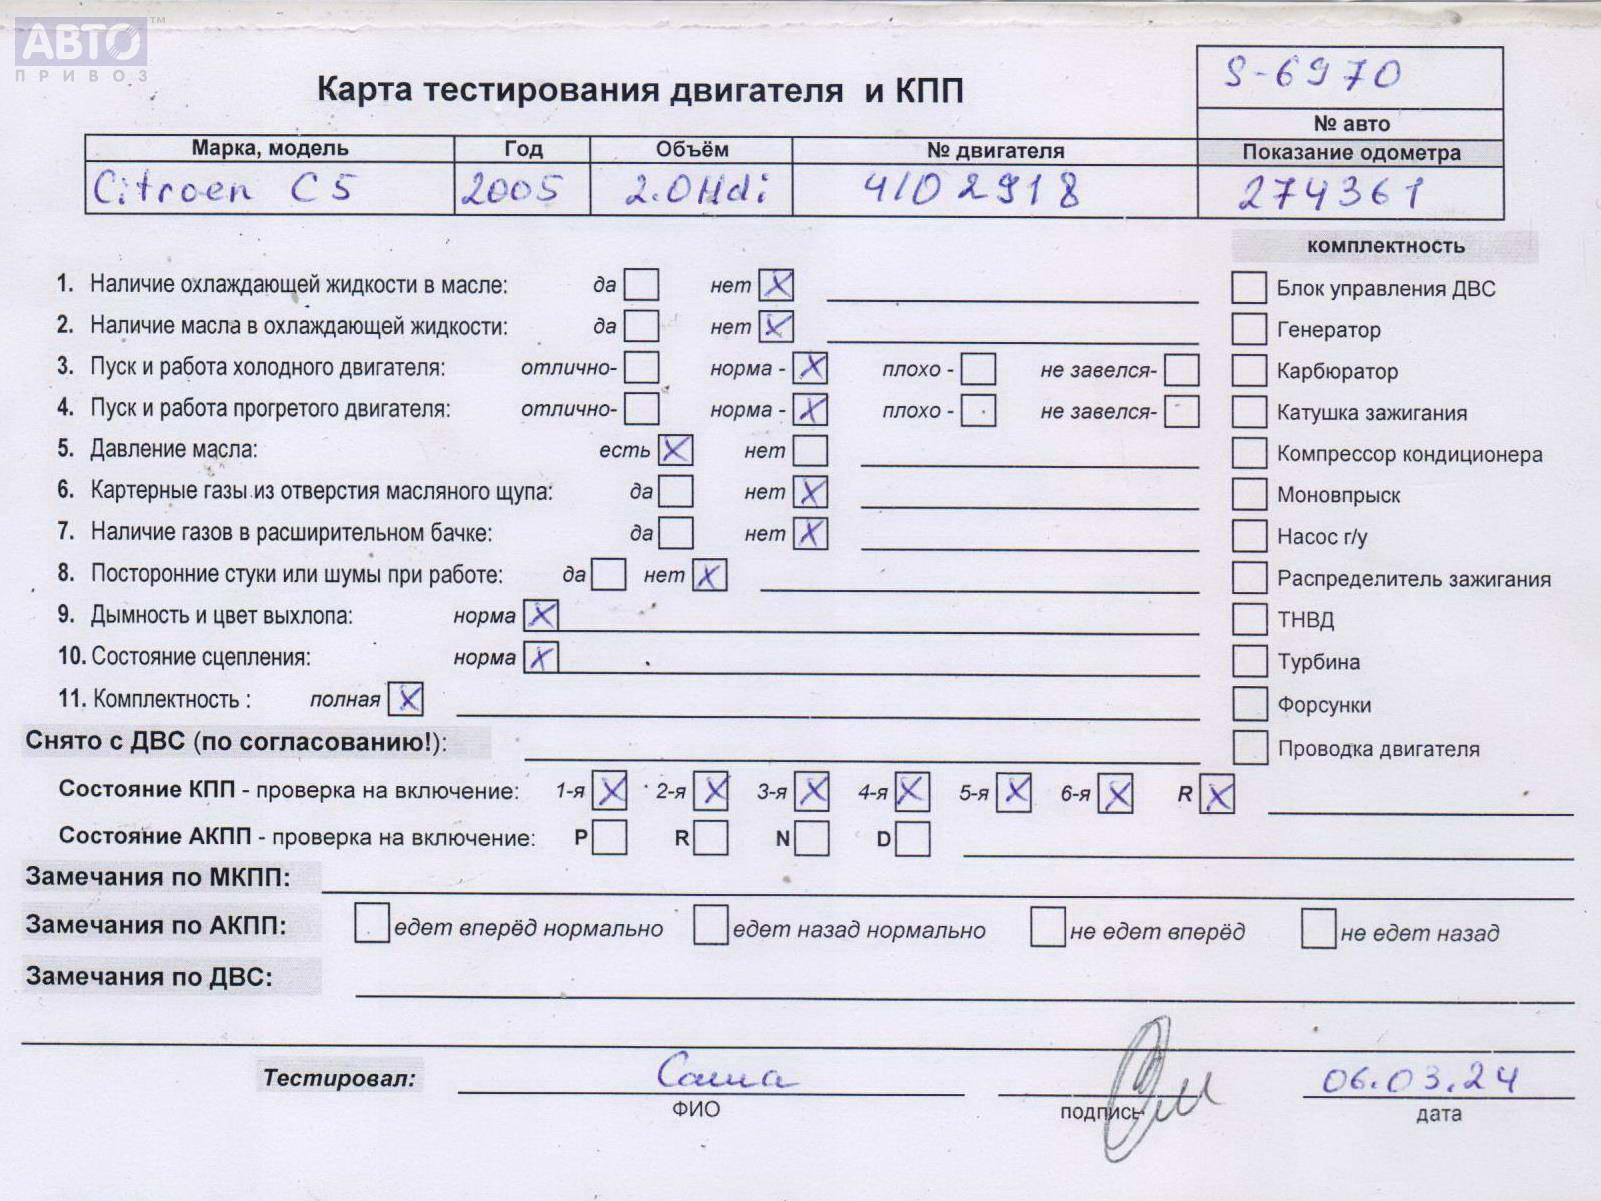 АВТО™
ПРИВОЗ
S-6970
Карта тестирования двигателя и КПП
№ авто
Марка, модель Год Объём № двигателя Показание одометра
Citroen C5 2005 2.0Hdi 4102918 274361
комплектность
1. Наличие охлаждающей жидкости в масле: да нет X Блок управления ДВС
2. Наличие масла в охлаждающей жидкости: да нет X Генератор
3. Пуск и работа холодного двигателя: отлично- норма - X плохо - не завелся- Карбюратор
4. Пуск и работа прогретого двигателя: отлично- норма - X плохо - не завелся- Катушка зажигания
5. Давление масла: есть X нет Компрессор кондиционера
6. Картерные газы из отверстия масляного щупа: да нет X Моновпрыск
7. Наличие газов в расширительном бачке: да нет X Насос г/у
8. Посторонние стуки или шумы при работе: да нет X Распределитель зажигания
9. Дымность и цвет выхлопа: норма X ТНВД
10. Состояние сцепления: норма X Турбина
11. Комплектность : полная X Форсунки
Снято с ДВС (по согласованию!): Проводка двигателя
Состояние КПП - проверка на включение: 1-я X 2-я X 3-я X 4-я X 5-я X 6-я X R X
Состояние АКПП - проверка на включение: P R N D
Замечания по МКПП:
Замечания по АКПП: едет вперёд нормально едет назад нормально не едет вперёд не едет назад
Замечания по ДВС:
Тестировал: Саша 06.03.24
ФИО подпись дата